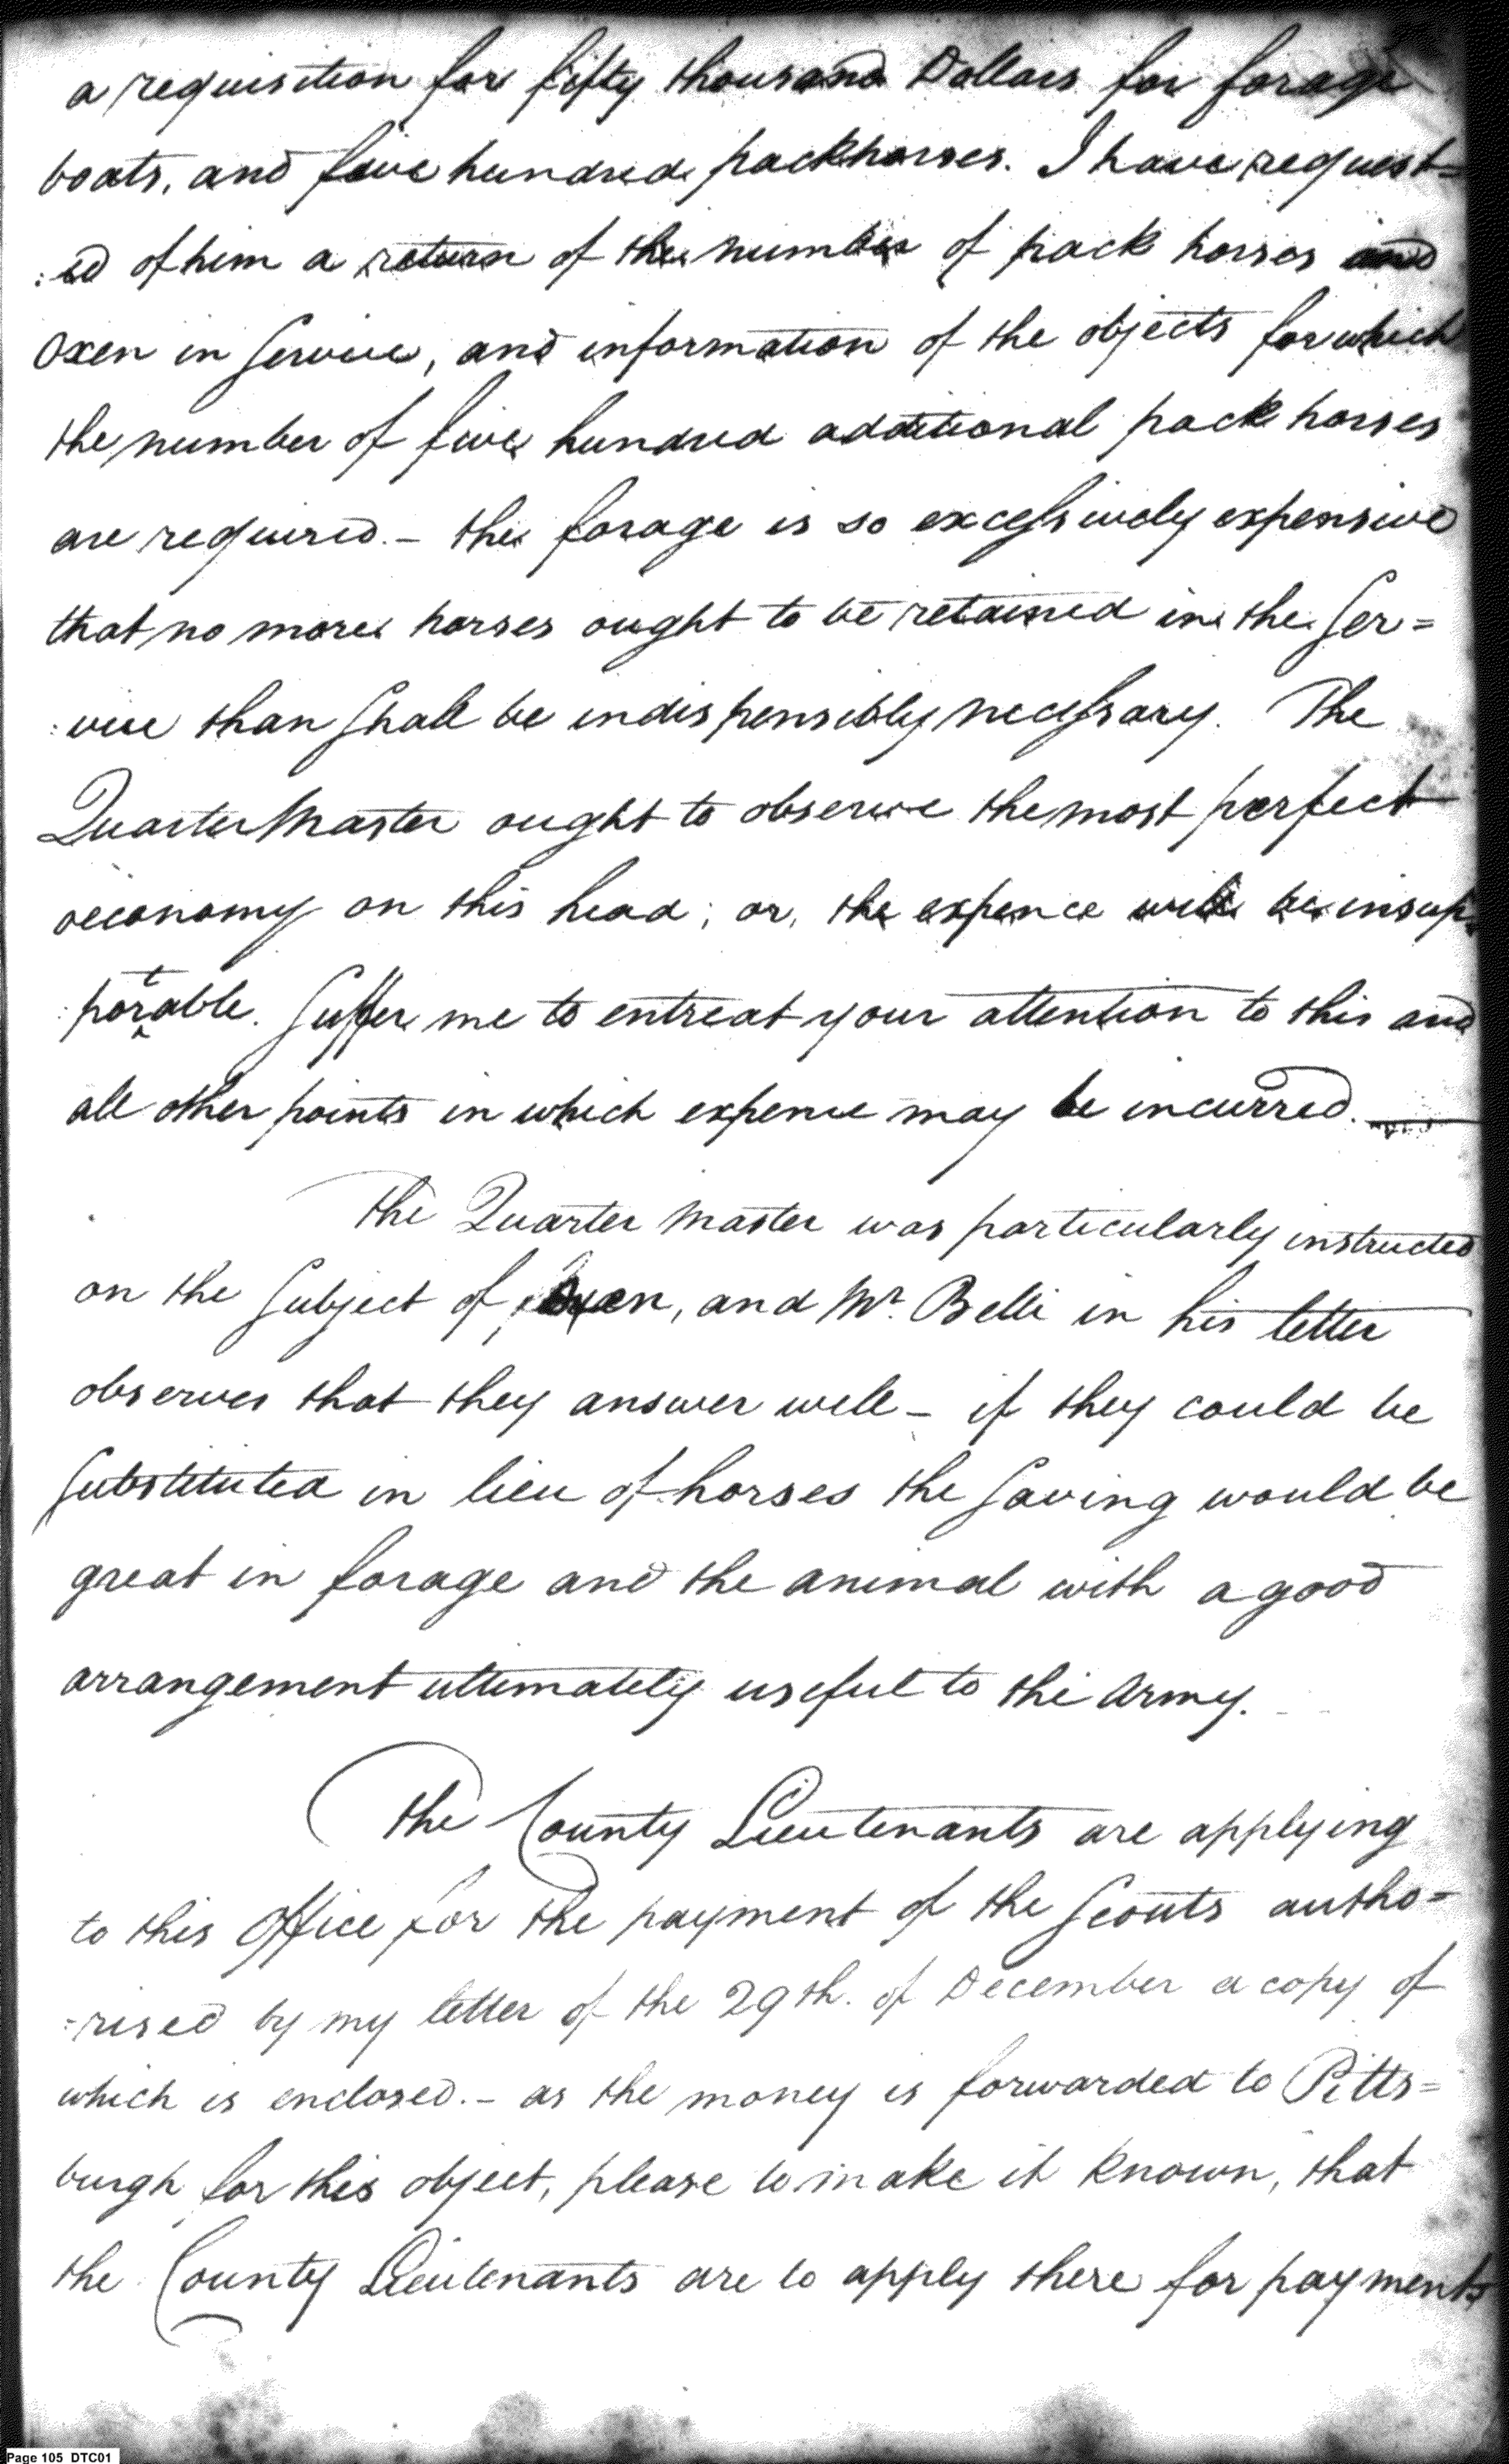 a requisition for fifty thousand Dollars for forage
boats, and five hundred packhorses. I have request=
:ed of him a return of the number of pack horses and
Oxen in Service, and information of the objects for which
the number of five hundred additional pack horses
are required.– the forage is so excessively expensive
that no more horses ought to be retained in the Ser=
:vice than shall be indispensibly necessary. The
QuarterMaster ought to observe the most perfect
oeconomy on this head; or, the expence will be insup=
:portable. Suffer me to entreat your attention to this and
all other points in which expence may be incurred.—
The Quarter Master was particularly instructed
on the Subject of Oxen, and Mr. Belli in his letter
observes that they answer well – if they could be
Substituted in lieu of horses the Saving would be
great in forage and the animal with a good
arrangement ultimately useful to the Army.
The County Lieutenants are applying
to this Office for the payment of the Scouts autho=
=rised by my letter of the 29th. of December a copy of
which is enclosed.– as the money is forwarded to Pitts=
burgh for this object, please to make it known, that
the County Lieutenants are to apply there for payments
Page 105 DTC01